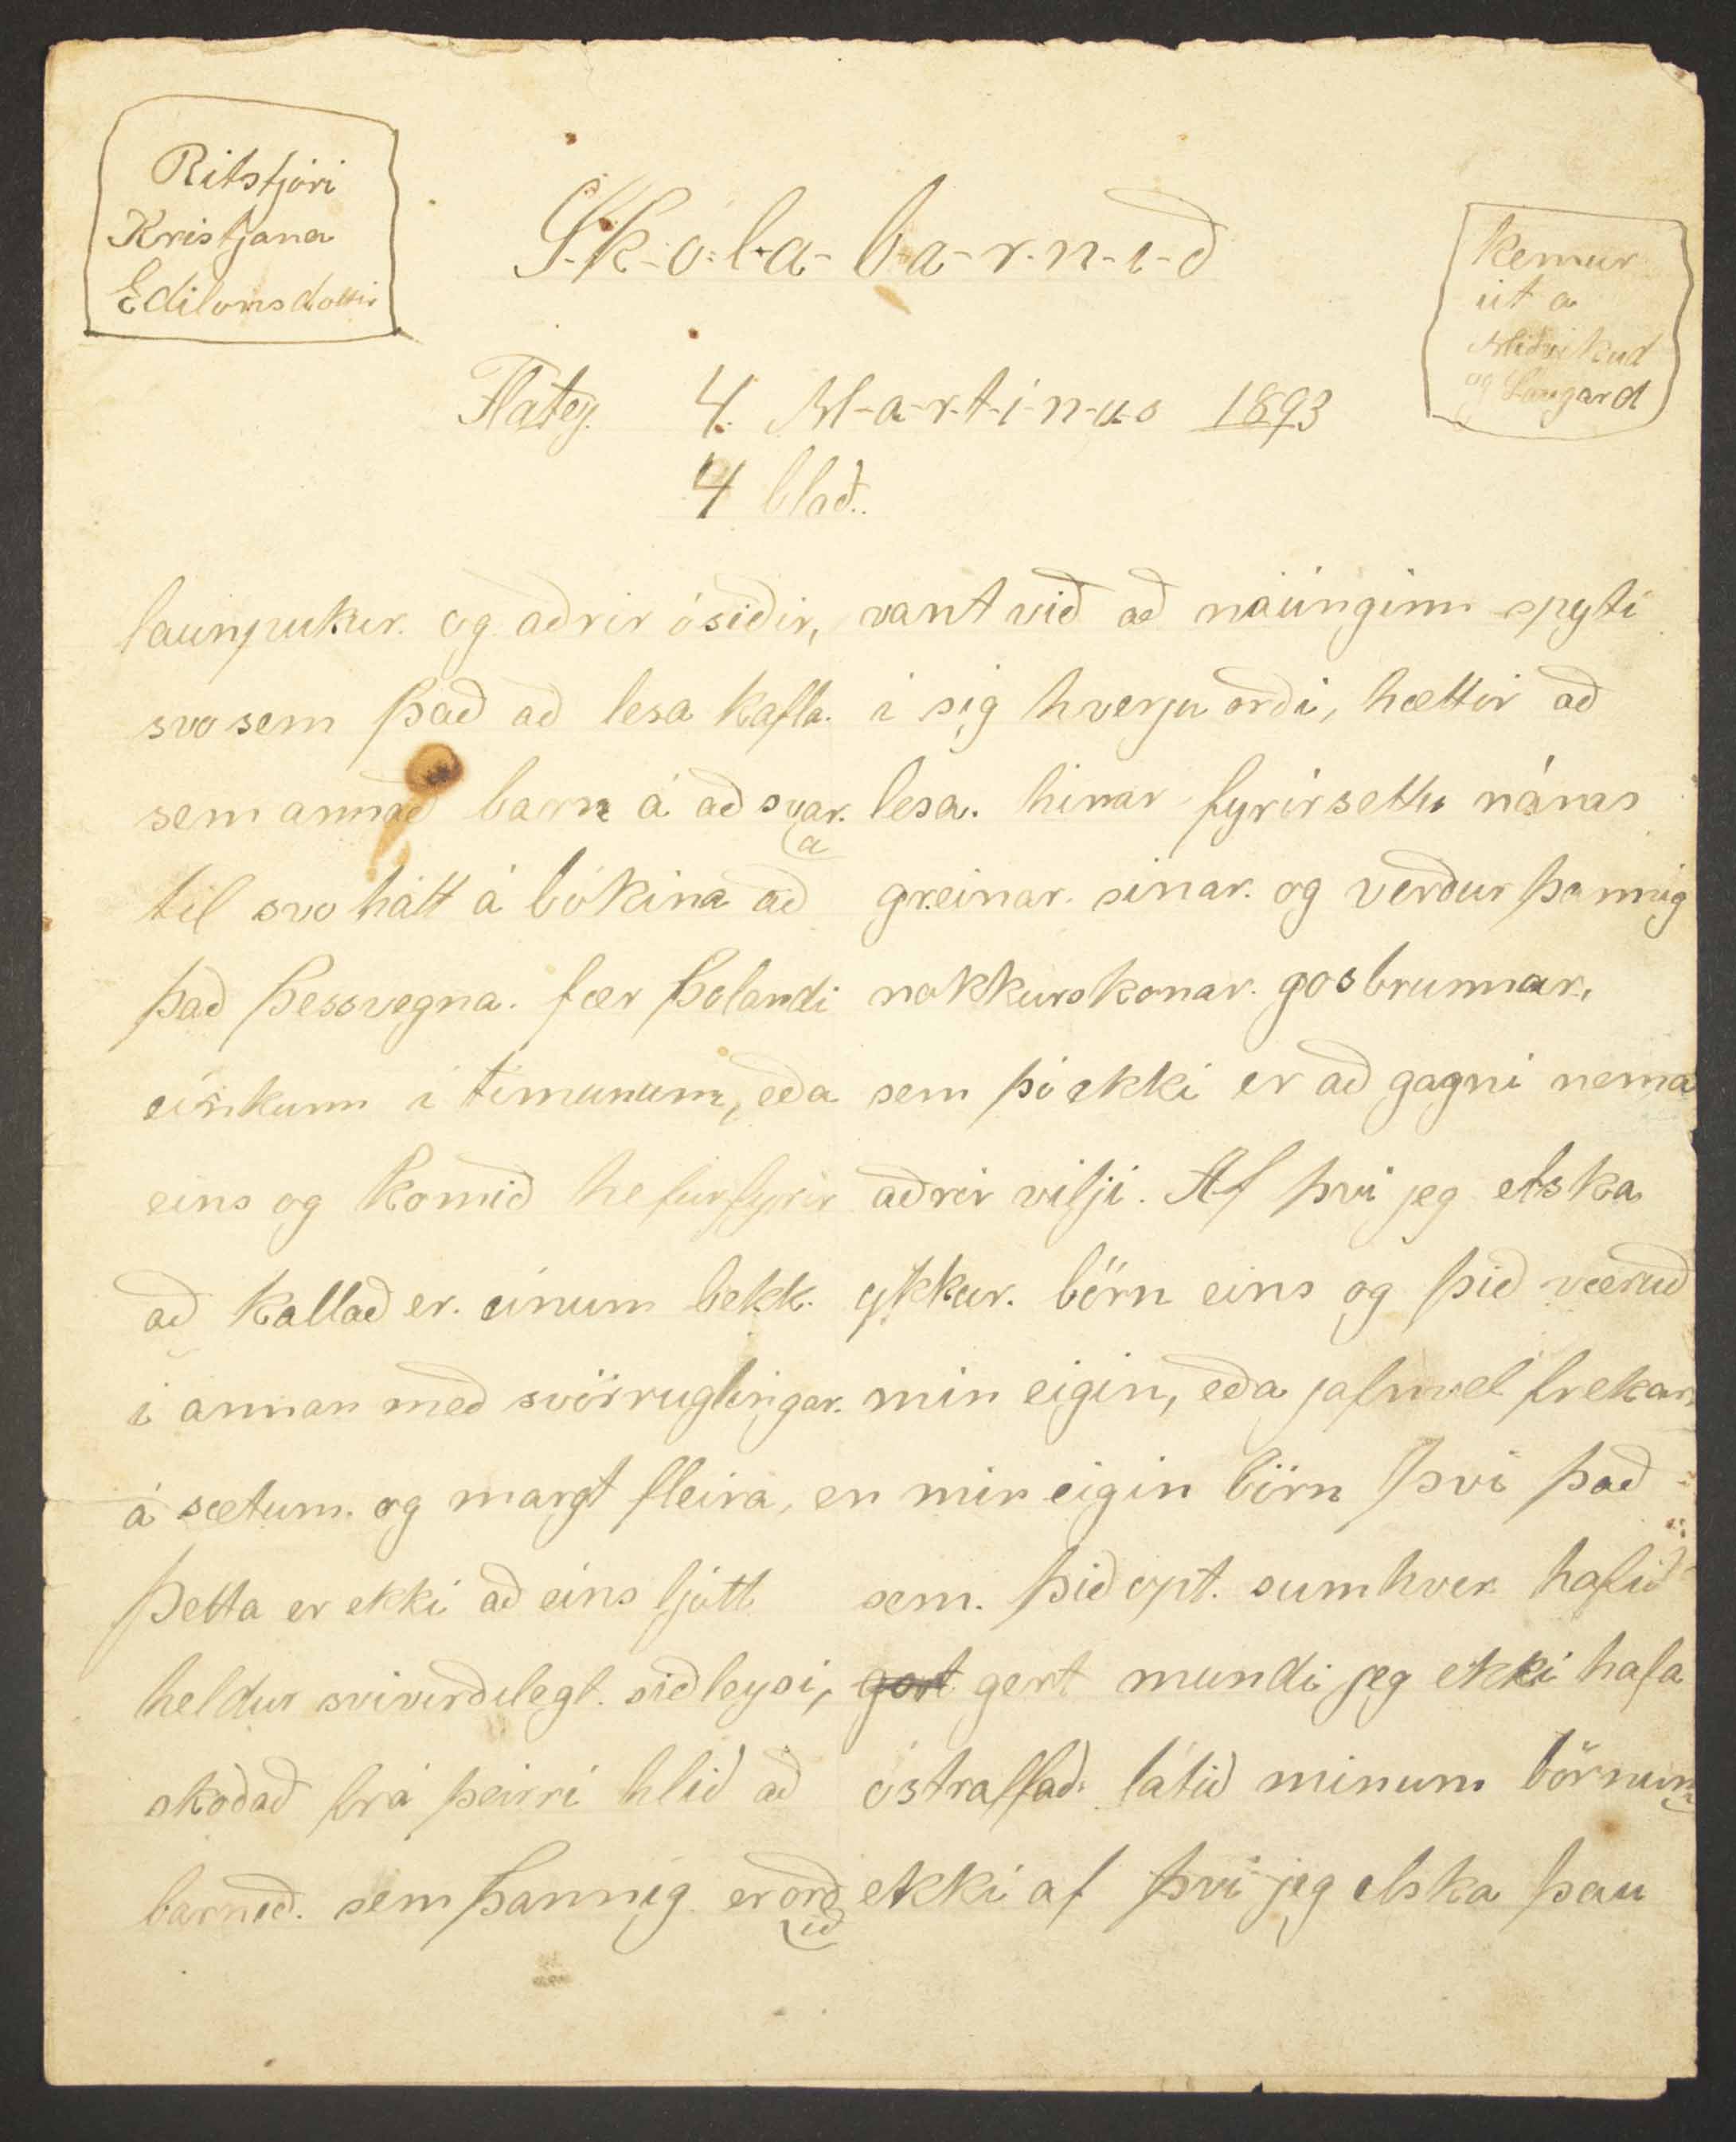 Ritstjóri
Kristjana
Edilonsdottir
S-k-ó-l-a-b-a-r-n-i-ð
kemur
út a
Miðvikud
og Laugard
Flatey. 4. M-a-r-t-i-n-u-s 1893
4 blað..
launpukur. og aðrir ósiðir,
svo sem það að lesa kafla.
sem annað barn á að svar.
a
til svo hátt á bókina að
það þessvegna. fær þolandi
einkunn i timunum, eða
eins og komið hefur fyrir
að kallað er. úr einum bekk.
i annan með svörruglingar.
á sætum. og margt fleira,
þetta er ekki að eins ljótt
heldur svivirðilegt. siðleysi,
skoðað frá þeirri hlið að
barnið. sem þannig er orð
ið
vant við að náúnginn spyti
i sig hverju orði, hættir að
lesa. hinar fyrirsettu námas
greinar. sinar. og verður þannig
nokkurskonar. gosbrunnar,
sem þó ekki er að gagni nema
aðrir vilji. Af þvi jeg elska
ykkur. börn eins og þið væruð
min eigin, eða jafnvel frekar,
en min eigin börn þvi það
sem. þið opt. sumhver hafið
gort gert mundi jeg ekki hafa
óstraffað. látið minum börnum
ekki af þvi jeg elska þau